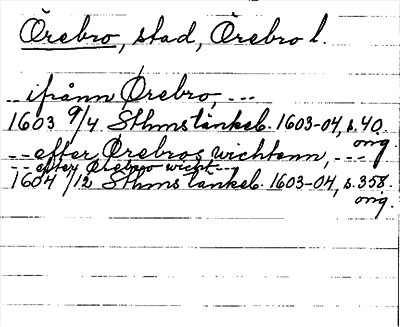 Örebro, stad, Örebro l.
-- ifrånn Örebro, ---
1603 9/4 Sthms tänkeb. 1603-04, s. 40.
orig.
-- efter Örebros wichtenn, ---
-- efter Örebro wicht ---
1604 /12 Sthms tänkeb. 1603-04, s. 358.
orig.